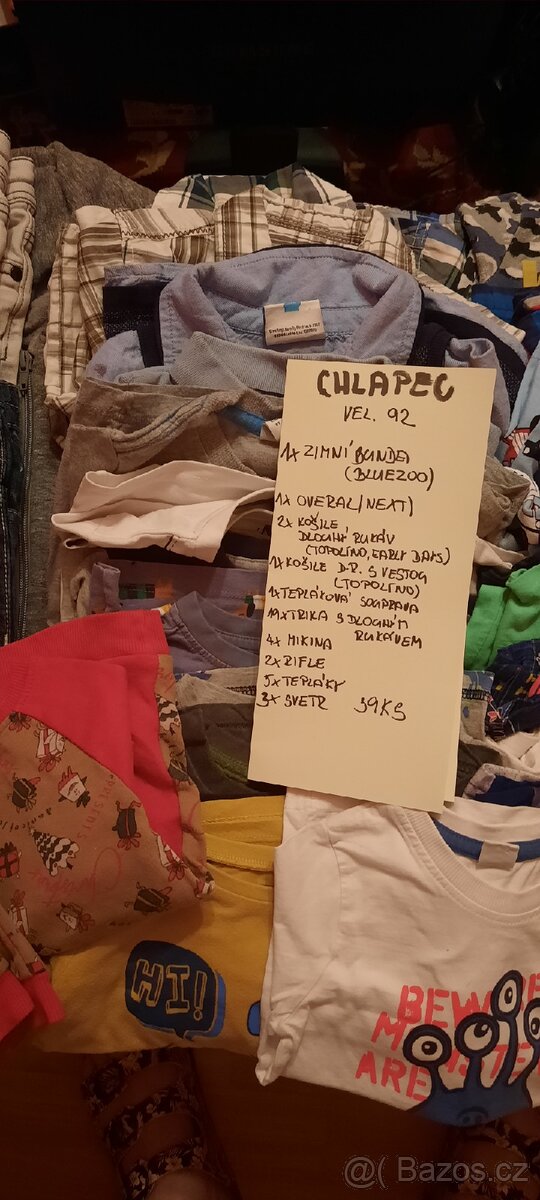 CHLAPEC
VEL. 92
1x ZIMNÍ BUNDA
(BLUEZOO)
1x OVERAL (NEXT)
2x KOŠILE
DLOUHÝ RUKÁV
(TOPOLINO, EARLY DAYS)
1x KOŠILE D.R. S VESTOU
(TOPOLINO)
1x TEPLÁKOVÁ SOUPRAVA
19x TRIKA S DLOUHÝM
RUKÁVEM
4x MIKINA
2x RIFLE
5x TEPLÁKY
3x SVETR 39KS
PRESENTS
HI!
BEWARE
ARE
@( Bazos.cz